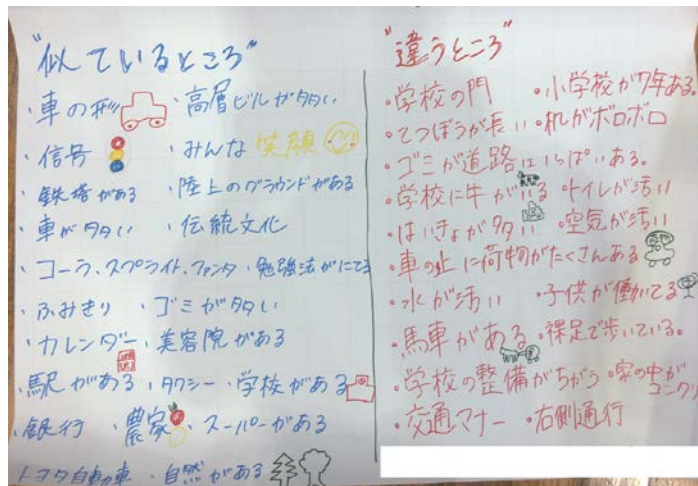 "似ているところ"
・車の形 ・高層ビルが多い
・信号 ・みんな笑顔
・鉄塔がある ・陸上のグラウンドがある
・車が多い ・伝統文化
・コーラ、スプライト、ファンタ ・勉強法がにてる
・ふみきり ・ゴミが多い
・カレンダー ・美容院がある
・駅がある ・タクシー ・学校がある
・銀行 ・農家 ・スーパーがある
トヨタ自動車 ・自然がある
"違うところ"
・学校の門 ・小学校が7年ある。
・てつぼうが長い ・机がボロボロ
・ゴミが道路にいっぱいある。
・学校に牛がいる ・トイレが汚い
・はいきょが多い ・空気が汚い
・車の上に荷物がたくさんある
・水が汚い ・子供が働いてる
・馬車がある ・裸足で歩いている。
・学校の整備がちがう ・家の中がコンクリ
・交通マナー ・右側通行